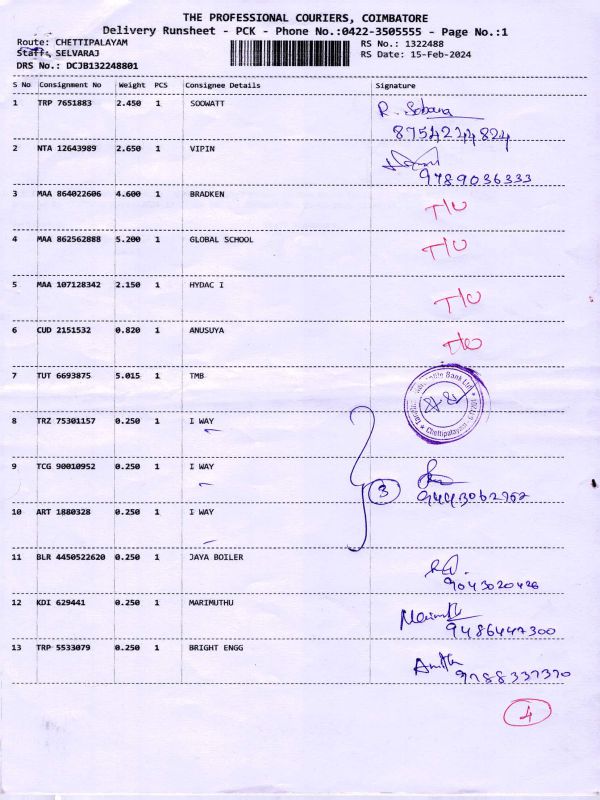 THE PROFESSIONAL COURIERS, COIMBATORE
Delivery Runsheet - PCK - Phone No.:0422-3505555 - Page No.:1
Route: CHETTIPALAYAM RS No.: 1322488
Staff: SELVARAJ RS Date: 15-Feb-2024
DRS No.: DCJB132248801
S No Consignment No Weight PCS Consignee Details Signature
1 TRP 7651883 2.450 1 SOOWATT R. Sobana
8754214824
2 NTA 12643989 2.650 1 VIPIN
9789036333
3 MAA 864022606 4.600 1 BRADKEN T/U
4 MAA 862562888 5.200 1 GLOBAL SCHOOL T/U
5 MAA 107128342 2.150 1 HYDAC I T/U
6 CUD 2151532 0.820 1 ANUSUYA
7 TUT 6693875 5.015 1 TMB
Bank Ltd
Chettipalayam
8 TRZ 75301157 0.250 1 I WAY
9 TCG 90010952 0.250 1 I WAY
3
10 ART 1880328 0.250 1 I WAY
11 BLR 4450522620 0.250 1 JAYA BOILER
9043020426
12 KDI 629441 0.250 1 MARIMUTHU
9486447300
13 TRP 5533079 0.250 1 BRIGHT ENGG
9788337370
4